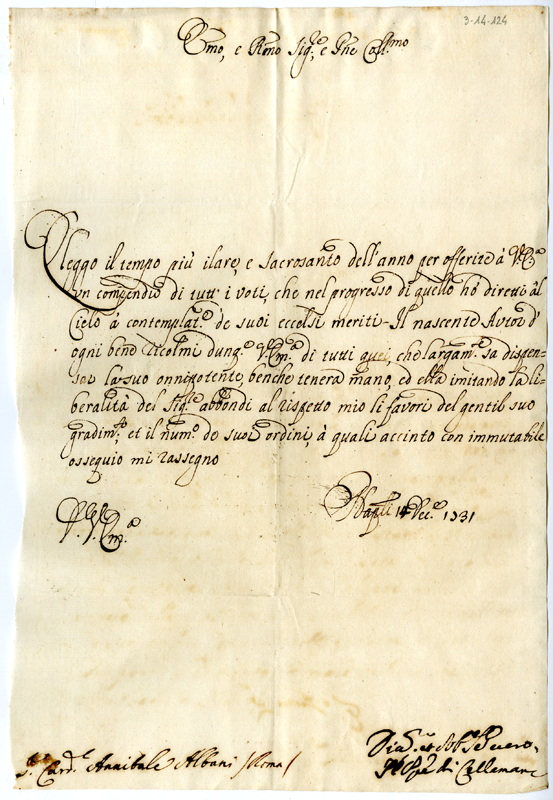 3-14-124
Emo, e Rmo Sig.re, e Pne Coll.mo
Eleggo il tempo più ilare, e sacrosanto dell'anno per offerire à V.Em.a
un compendio di tutt'i voti, che nel progresso di quello hò diretti al
Cielo à contemplaz.e de suoi eccelsi meriti. Il nascente Autor d'
ogni bene ricolmi dunq.e V.Em.a di tutti quei, che largam.te sà dispen-
sar la suo onnipotente, benche tenera mano, ed ella imitando la li-
beralità del Sig.re abbondi al rispetto mio li favori del gentil suo
gradim.to, et il num.o de suoi ordini, à quali accinto con immutabile
ossequio mi rassegno
Napoli 14 Dec.e 1731
V.Em.a
S.r Card.le Annibale Albani /Roma/
Di Cellamare